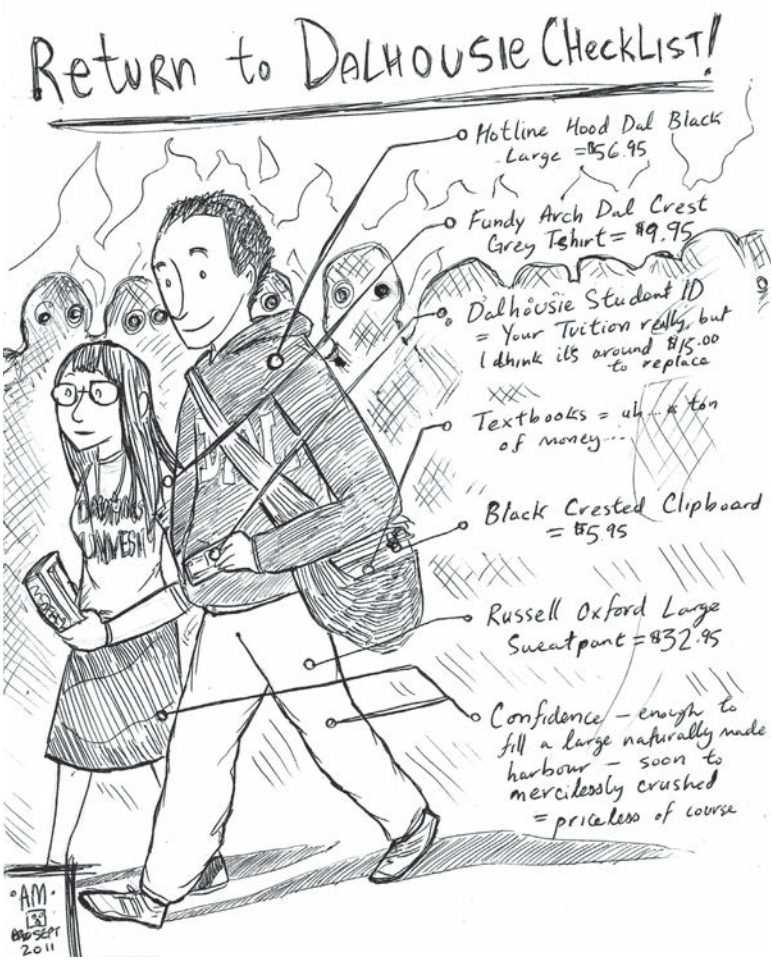 Return to DALHOUSIE CHECKLIST!
Hotline Hood Dal Black
Large = $56.95
Fundy Arch Dal Crest
Grey Tshirt = $9.95
Dalhousie Student ID
= Your Tuition really, but
I think its around $15.00
to replace
Textbooks = uh... a ton
of money...
Black Crested Clipboard
= $5.95
Russell Oxford Large
Sweatpant = $32.95
Confidence – enough to
fill a large naturally made
harbour – soon to
mercilessly crushed
= priceless of course
DAL
UNIVESITY
AM
SEPT
2011